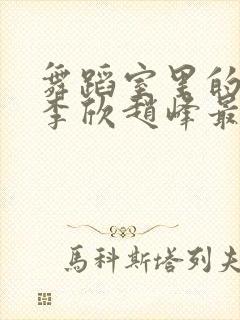 舞蹈室里的
李欣趙峰最
馬科斯塔列夫